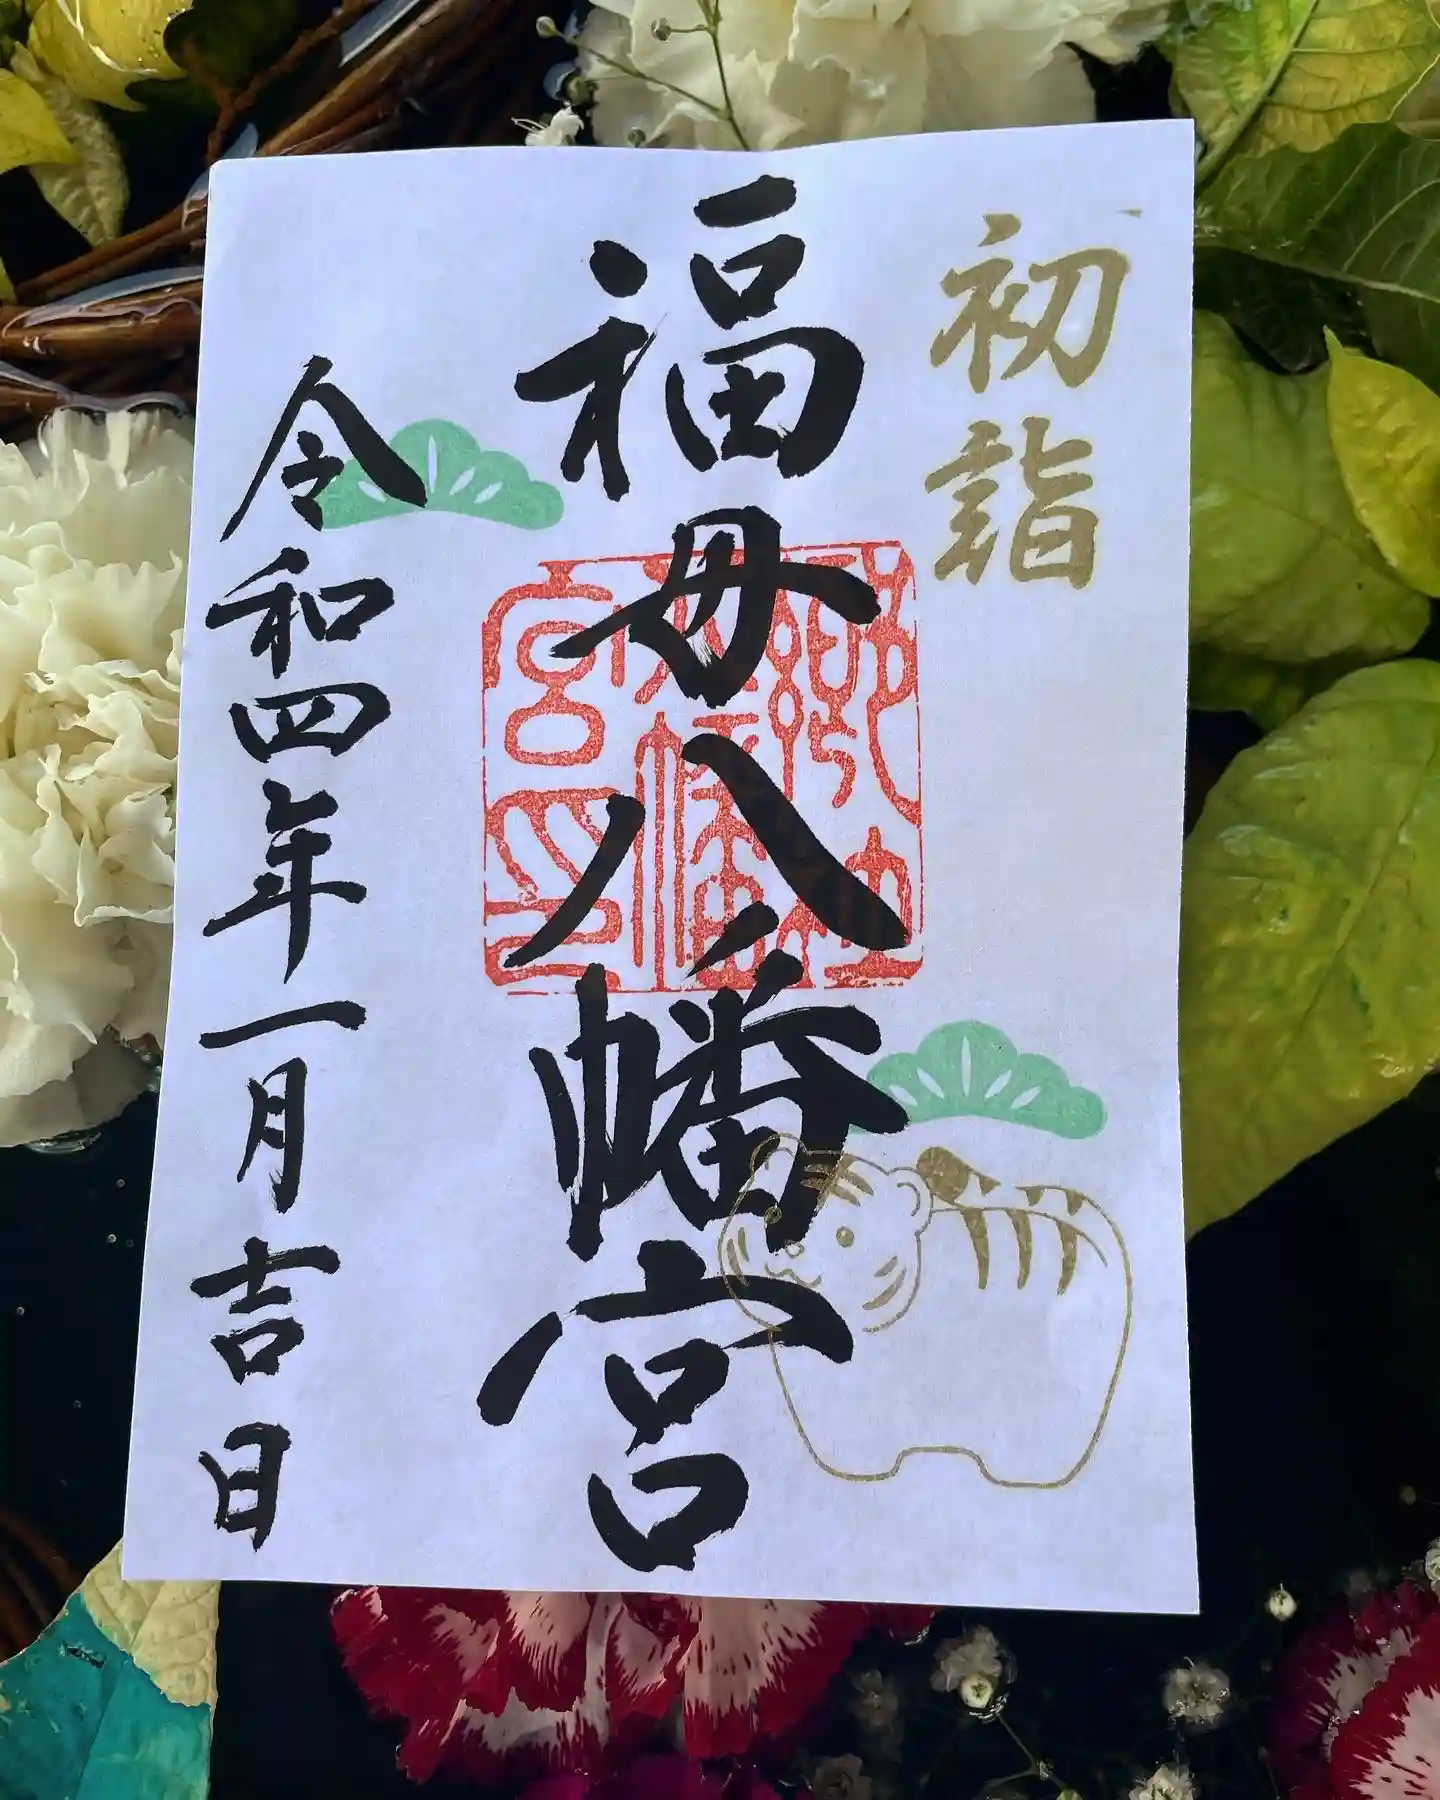 初詣
福母八幡宮
令和四年一月吉日